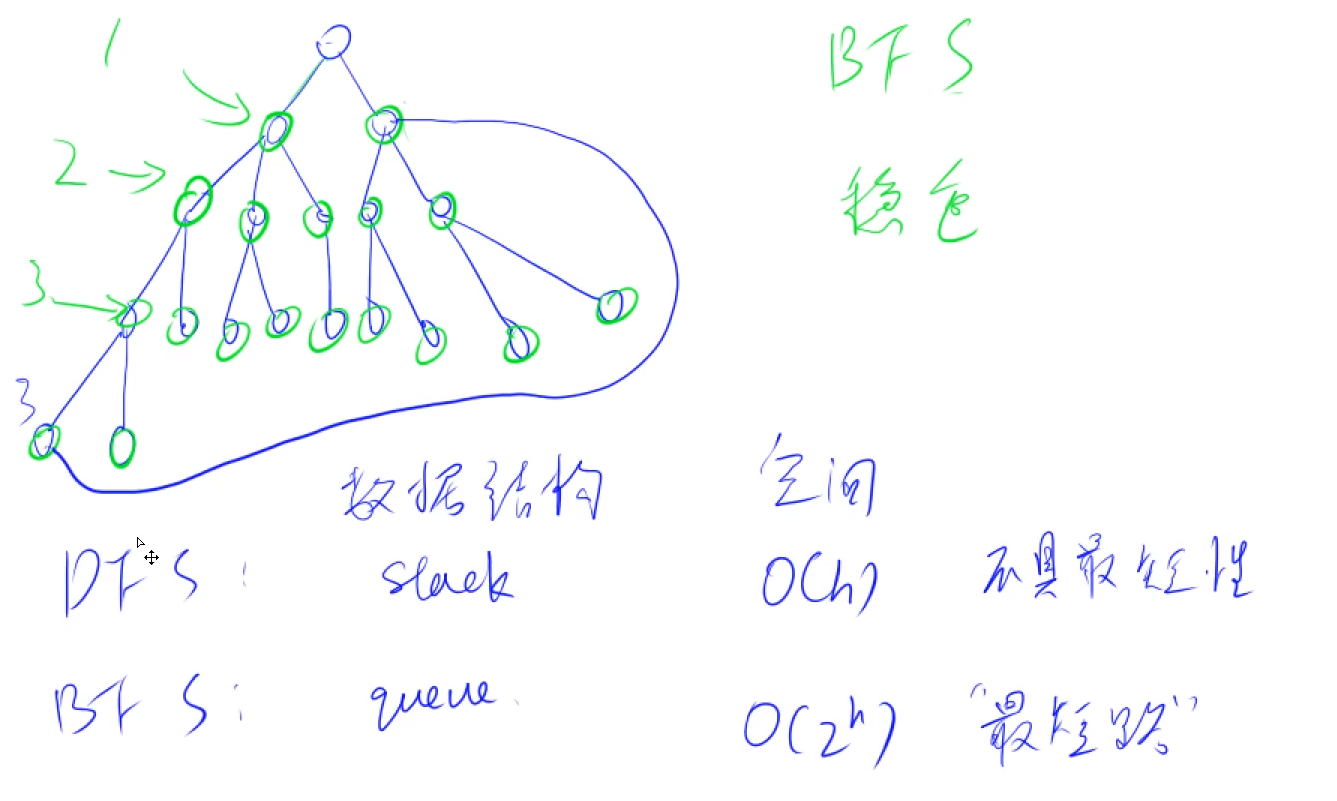 1
BFS
2
稳 色
3
3
数据结构 空间
DFS: stack O(h) 不具最短性
BFS: queue. O(2^h) "最短路"